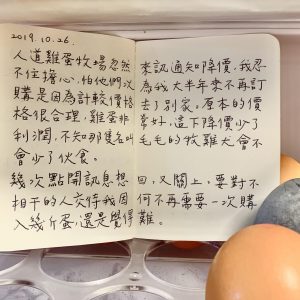 2019.10.26.
人道雞蛋牧場忽然來訊通知降價，我忍
不住擔心，怕他們以為我大半年來不再訂
購是因為計較價格去了別家。原本的價
格很合理，雞蛋非常好，這下降價少了
利潤，不知那隻名叫毛毛的牧雞犬會不
會少了伙食。
幾次點開訊息想回，又關上，要對不
相干的人交待我因何不再需要一次購
入幾斤蛋，還是覺得難。